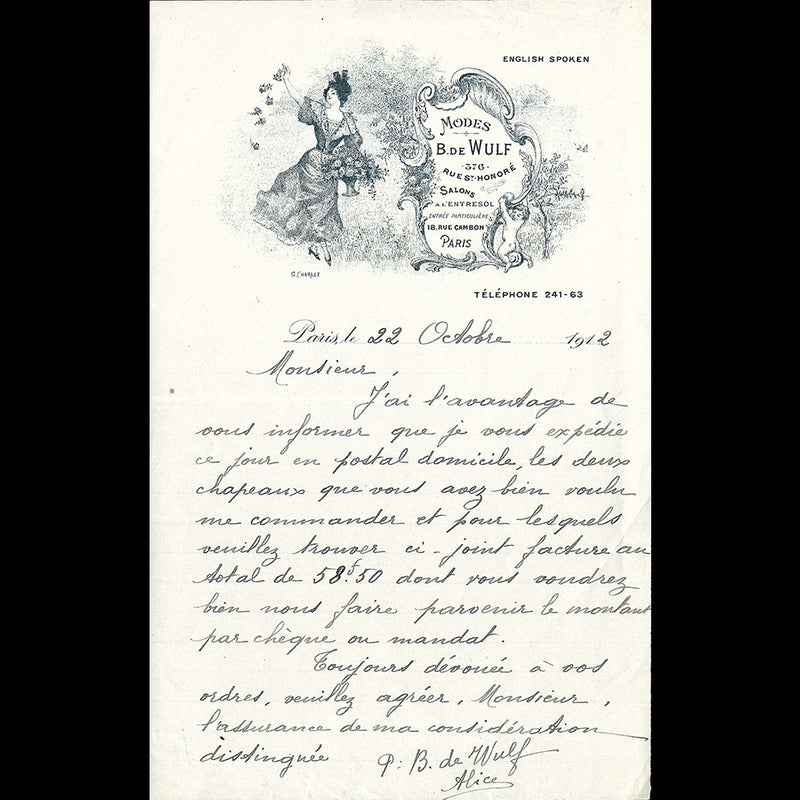 ENGLISH SPOKEN
MODES
B. DE WULF
376
RUE ST-HONORÉ
SALONS
A L'ENTRESOL
ENTRÉE PARTICULIÈRE
18, RUE CAMBON
PARIS
G. CHARLET
TÉLÉPHONE 241-63
Paris, le 22 Octobre 1912
Monsieur,
J'ai l'avantage de
vous informer que je vous expédie
ce jour en postal domicile, les deux
chapeaux que vous avez bien voulu
me commander et pour lesquels
veuillez trouver ci-joint facture au
total de 58f.50 dont vous voudrez
bien nous faire parvenir le montant
par chèque ou mandat.
Toujours dévouée à vos
ordres, veuillez agréer, Monsieur,
l'assurance de ma considération
distinguée
P: B. de Wulf
Alice